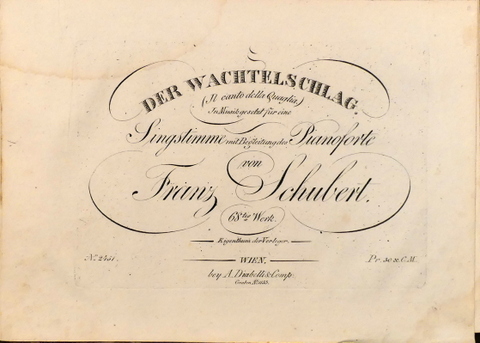 DER WACHTELSCHLAG.
(Il canto della Quaglia)
In Musik gesetzt für eine
Singstimme mit Begleitung des Pianoforte
von
Franz Schubert.
68tes Werk.
Eigenthum der Verleger.
No. 2451.
WIEN,
Pr. 30 x. C.M.
bey A. Diabelli & Comp.
Graben No. 1133.